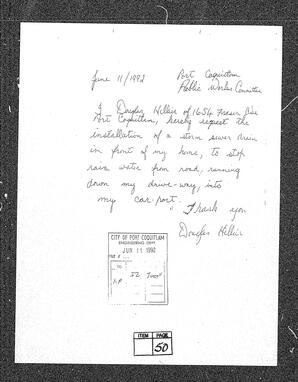 June 11/1992
Port Coquitlam
Public Works Committee
I Douglas Hellier of 1654 Fraser Ave
Port Coquitlam, hereby request the
installation of a storm sewer drain
in front of my home, to stop
rain water from road, running
down my drive-way, into
my car-port.
Thank you
Douglas Hellier
CITY OF PORT COQUITLAM
ENGINEERING DEPT.
JUN 11 1992
FILE #
TO
ITEM PAGE
50